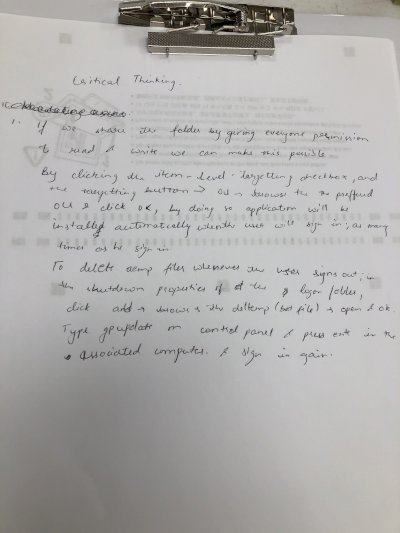 Critical Thinking.
1. If we share the folder by giving everyone permission
to read & write we can make this possible.
By clicking the item-Level-Targetting checkbox, and
the targetting button → OU → browse the preffered
OU & click ok, by doing so application will be
installed automatically whenthe user will sign in, as many
times as he sign in
To delete temp files whenever the user signs out; in
the shutdown properties of the logon folder,
click add → browse → the deltemp (bat file) → open & ok.
Type gpupdate in control panel & press entr in the
associated computer. & sign in gain.